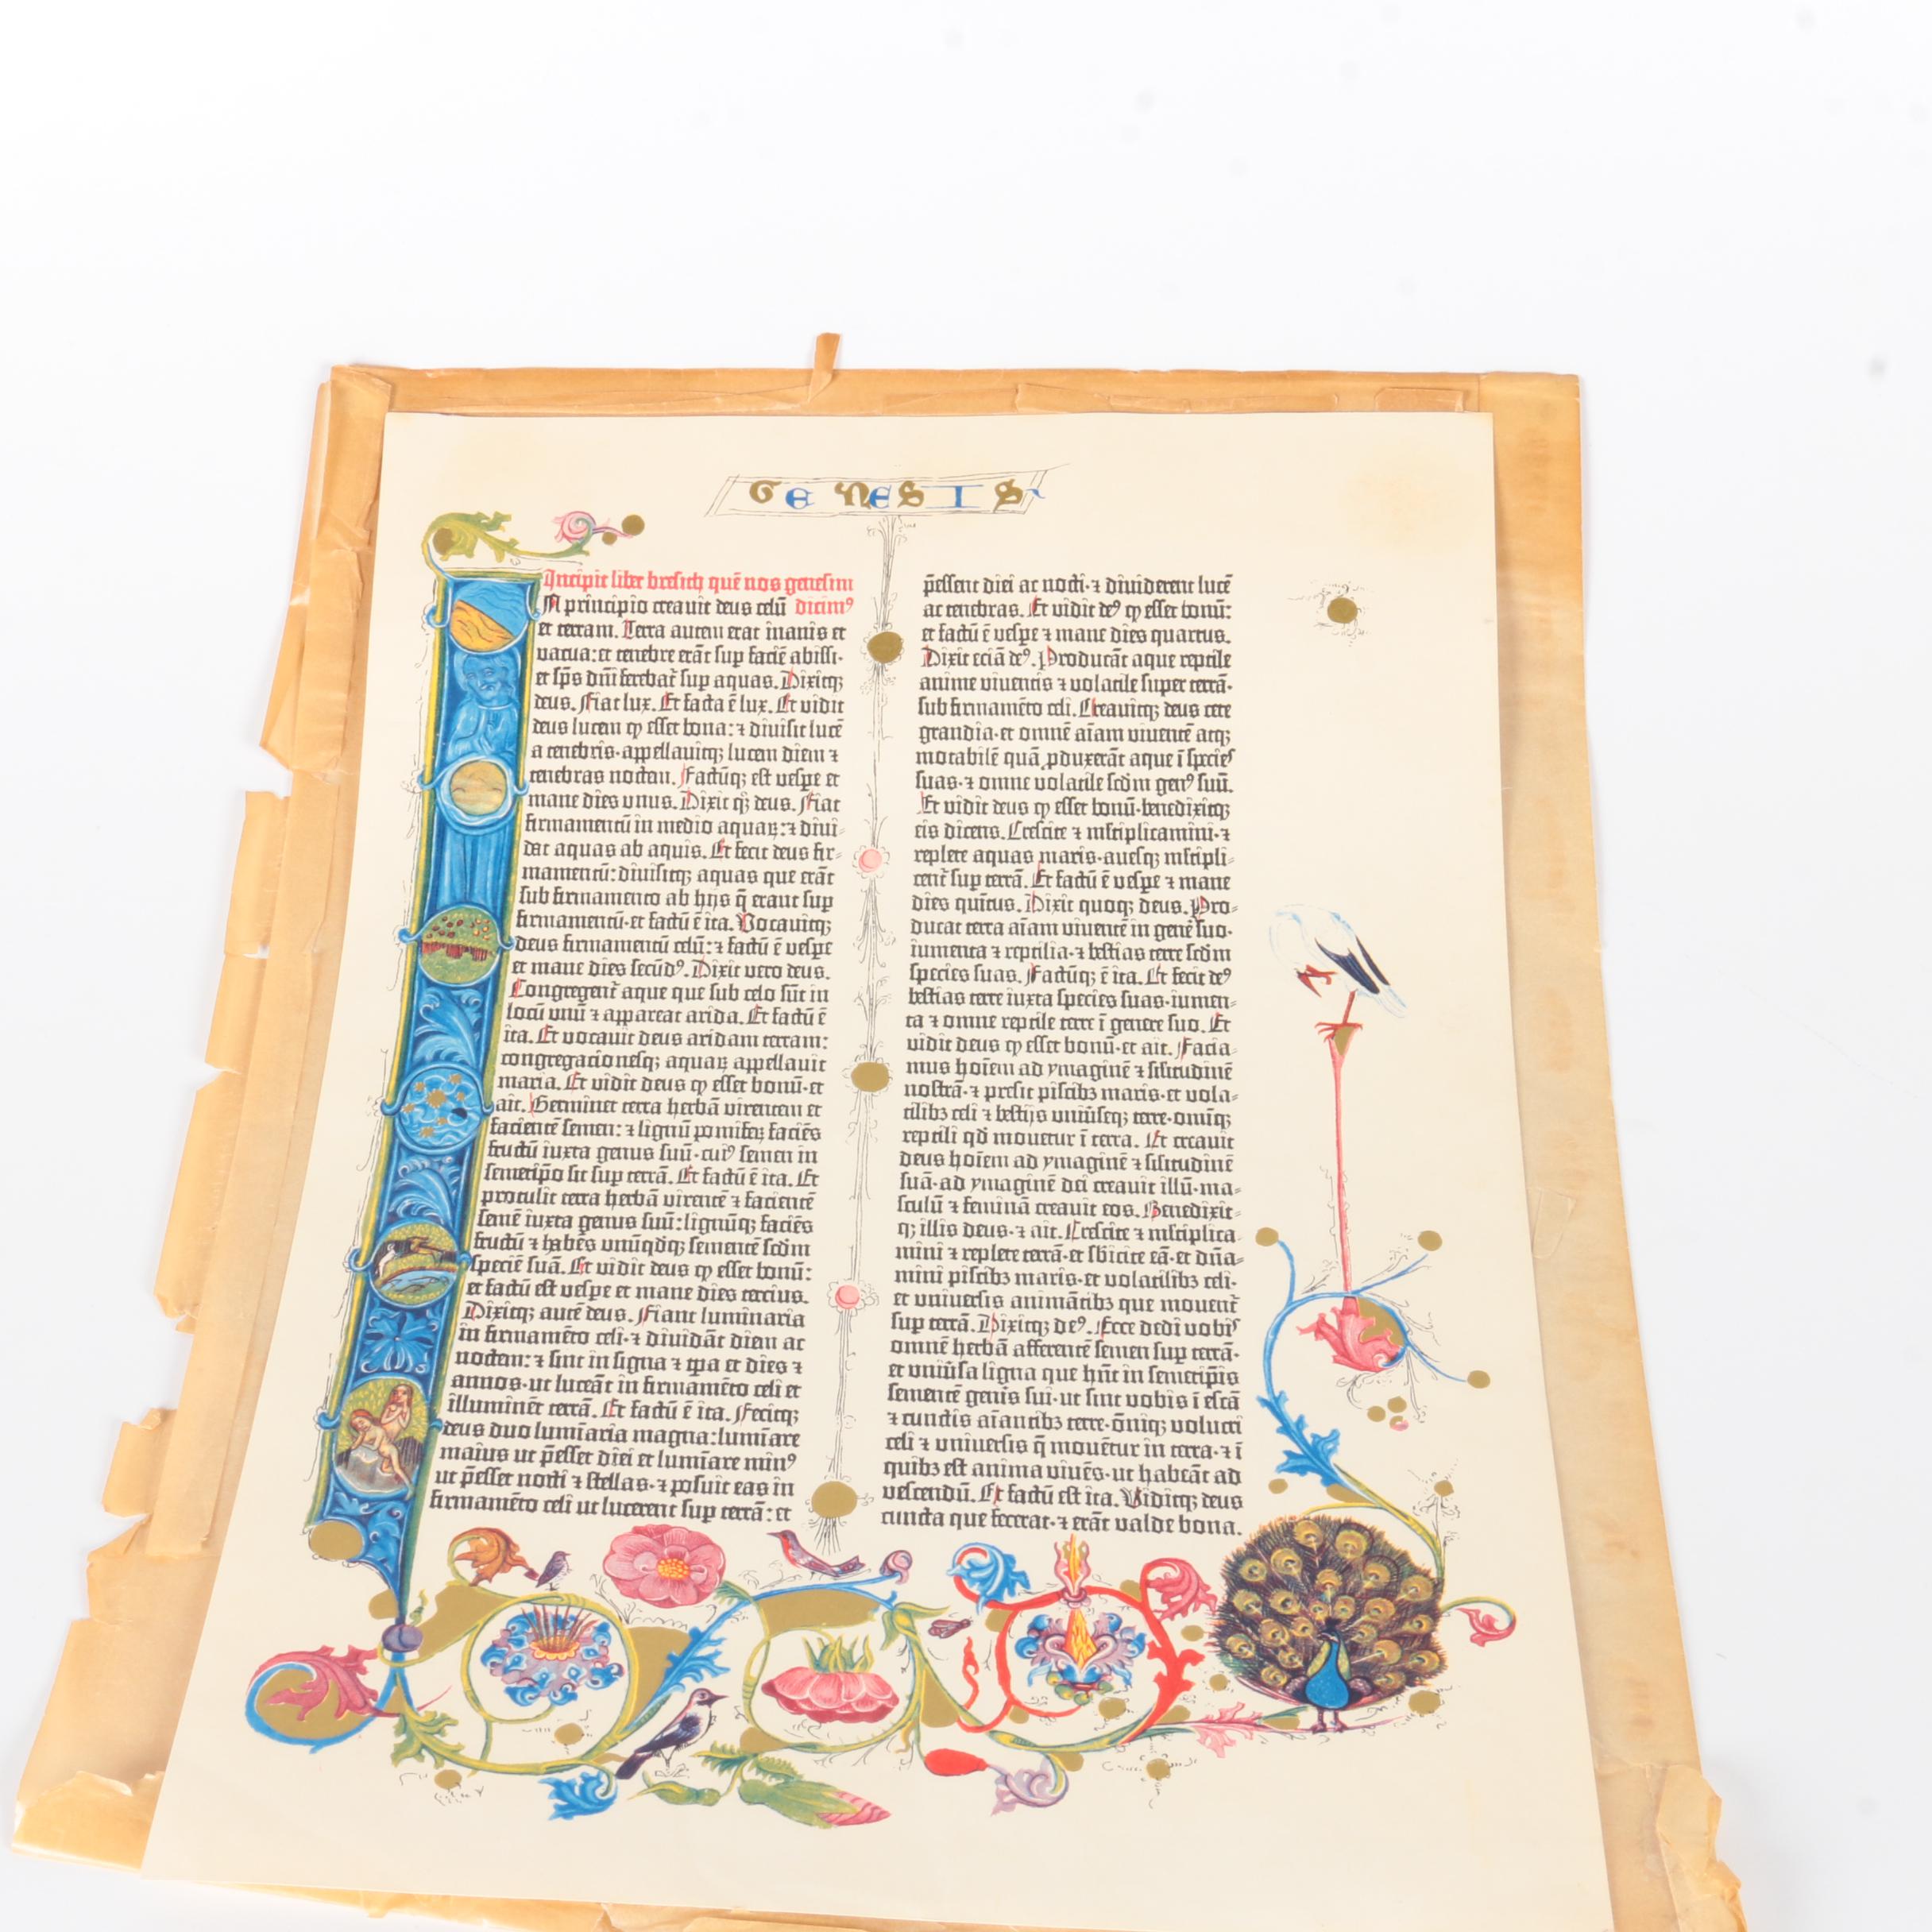 GENESIS
Incipit liber bresich quē nos genesim
A principio creavit deus celū dicimꝰ
et terram. Terra autem erat inanis et
vacua: et tenebre erāt sup faciē abissi·
et sp̄s dn̄i ferebat᷑ sup aquas. Dixitqꝫ
deus. Fiat lux. Et facta ē lux. Et vidit
deus lucem ꝙ esset bona: ⁊ divisit lucē
a tenebris·appellavitqꝫ lucem diem ⁊
tenebras noctem. Factūqꝫ est vespe et
mane dies vnus. Dixit qꝫ deus. Fiat
firmamentū in medio aquaꝝ: ⁊ divi⸗
dat aquas ab aquis. Et fecit deus fir⸗
mamentū: divisitqꝫ aquas que erāt
sub firmamento ab hijs q̄ erant sup
firmamentū·et factū ē ita. Vocavitqꝫ
deus firmamentū celū: ⁊ factū ē vespe
et mane dies secūdꝰ. Dixit vero deus.
Congregent᷑ aque que sub celo sūt in
locū vnū ⁊ appareat arida. Et factū ē
ita. Et vocavit deus aridam terram:
congregacionesqꝫ aquaꝝ appellavit
maria. Et vidit deus ꝙ esset bonū·et
ait. Germinet terra herbā virentem et
facientē semen: ⁊ lignū pomiferꝫ faciēs
fructū iuxta genus suū·cuiꝰ semen in
semetip̄o sit sup terrā. Et factū ē ita. Et
protulit terra herbā virentē ⁊ facientē
semē iuxta genus suū: lignūqꝫ faciēs
fructū ⁊ habēs vnūqdqꝫ sementē scdm
speciē suā. Et vidit deus ꝙ esset bonū:
et factū est vespe et mane dies tercius.
Dixitqꝫ autē deus. Fiant luminaria
in firmamēto celi·⁊ dividāt diem ac
noctem: ⁊ sint in signa ⁊ tp̄a et dies ⁊
annos·ut luceāt in firmamēto celi et
illuminēt terrā. Et factū ē ita. Fecitqꝫ
deus duo lumīaria magna: lumīare
maius ut p̄esset diei et lumīare minꝰ
ut p̄esset nocti ⁊ stellas·⁊ posuit eas in
firmamēto celi ut lucerent sup terrā: et
p̄essent diei ac nocti·⁊ dividerent lucē
ac tenebras. Et vidit deꝰ ꝙ esset bonū:
et factū ē vespe ⁊ mane dies quartus.
Dixit eciā deꝰ. Producāt aque reptile
anime viventis ⁊ volatile super terrā·
sub firmamēto celi. Creavitqꝫ deus cete
grandia·et omnē aīam viventē atqꝫ
motabilē quā ꝓduxerāt aque ī species
suas·⁊ omne volatile scdm genꝰ suū.
Et vidit deus ꝙ esset bonū·benedixitqꝫ
eis dicens. Crescite ⁊ mltiplicamini·⁊
replete aquas maris·avesqꝫ mltipli⸗
cent᷑ sup terrā. Et factū ē vespe ⁊ mane
dies quītus. Dixit quoqꝫ deus. Pro⸗
ducat terra aīam viventē in genē suo·
iumenta ⁊ reptilia·⁊ bestias terre scdm
species suas. Factūqꝫ ē ita. Et fecit deꝰ
bestias terre iuxta species suas·iumen⸗
ta ⁊ omne reptile terre ī genere suo. Et
vidit deus ꝙ esset bonū·et ait. Facia⸗
mus hoīem ad ymaginē ⁊ silitudinē
nostrā·⁊ presit piscibꝫ maris·et vola⸗
tilibꝫ celi ⁊ bestijs vniūseqꝫ terre·omīqꝫ
reptili qd̄ movetur ī terra. Et creavit
deus hoīem ad ymaginē ⁊ silitudinē
suā·ad ymaginē dei creavit illū·ma⸗
sculū ⁊ feminā creavit eos. Benedixit⸗
qꝫ illis deus·⁊ ait. Crescite ⁊ mltiplica⸗
mini ⁊ replete terrā·et sbicite eā·et dn̄a⸗
mini piscibꝫ maris·et volatilibꝫ celi·
et universis animātibꝫ que movent᷑
sup terrā. Dixitqꝫ deꝰ. Ecce dedi vobis
omnē herbā afferentē semen sup terrā·
et vniūsa ligna que hn̄t in semetip̄is
sementē genis sui·ut sint vobis ī escā
⁊ cunctis aīantibꝫ terre·ōniqꝫ volucri
celi ⁊ universis q̄ movētur in terra·⁊ ī
quibꝫ est anima vivēs·ut habeāt ad
vescendū. Et factū est ita. Viditqꝫ deus
cuncta que fecerat·⁊ erāt valde bona.